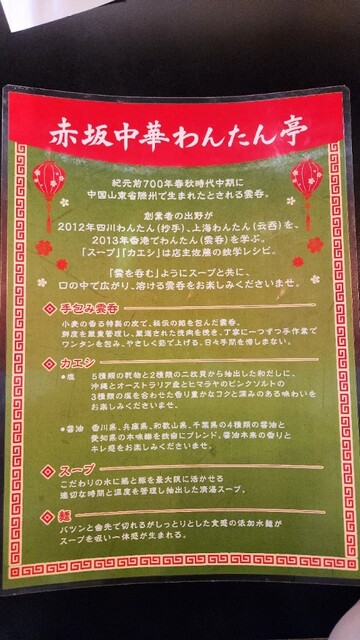 赤坂中華わんたん亭
紀元前700年春秋時代中期に
中国山東省滕州で生まれたとされる雲呑。
創業者の出野が
2012年四川わんたん(抄手)、上海わんたん(云吞)を、
2013年香港でわんたん(雲呑)を学ぶ。
「スープ」「カエシ」は店主故熊の独学レシピ。
「雲を呑む」ようにスープと共に、
口の中で広がり、溶ける雲呑をお楽しみくださいませ。
手包み雲呑
小麦の香る特製の皮で、秘伝の餡を包んだ雲呑。
鮮度を重業管理し、厳選された挽肉を挽き、丁寧に一つずつ手作業で
ワンタンを包み、やさしく茹で上げる。日々手間を惜しまない。
カエシ
●塩 5種類の乾物と2種類の二枚貝から抽出した和だしに、
沖縄とオーストラリア産とヒマラヤのピンクソルトの
3種類の塩を合わせた香り豊かなコクと深みのある味わいを
お楽しみくださいませ。
●醤油 香川県、兵庫県、和歌山県、千葉県の4種類の醤油と
愛知県の本味醂を独自にブレンド。醤油本来の香りと
キレ感をお楽しみくださいませ。
スープ
こだわりの水に鶏と豚を最大限に活かせる
適切な時間と温度を管理し抽出した清湯スープ。
麺
パツンと歯先で切れるがしっとりとした食感の低加水麺が
スープを吸い一体感が生まれる。